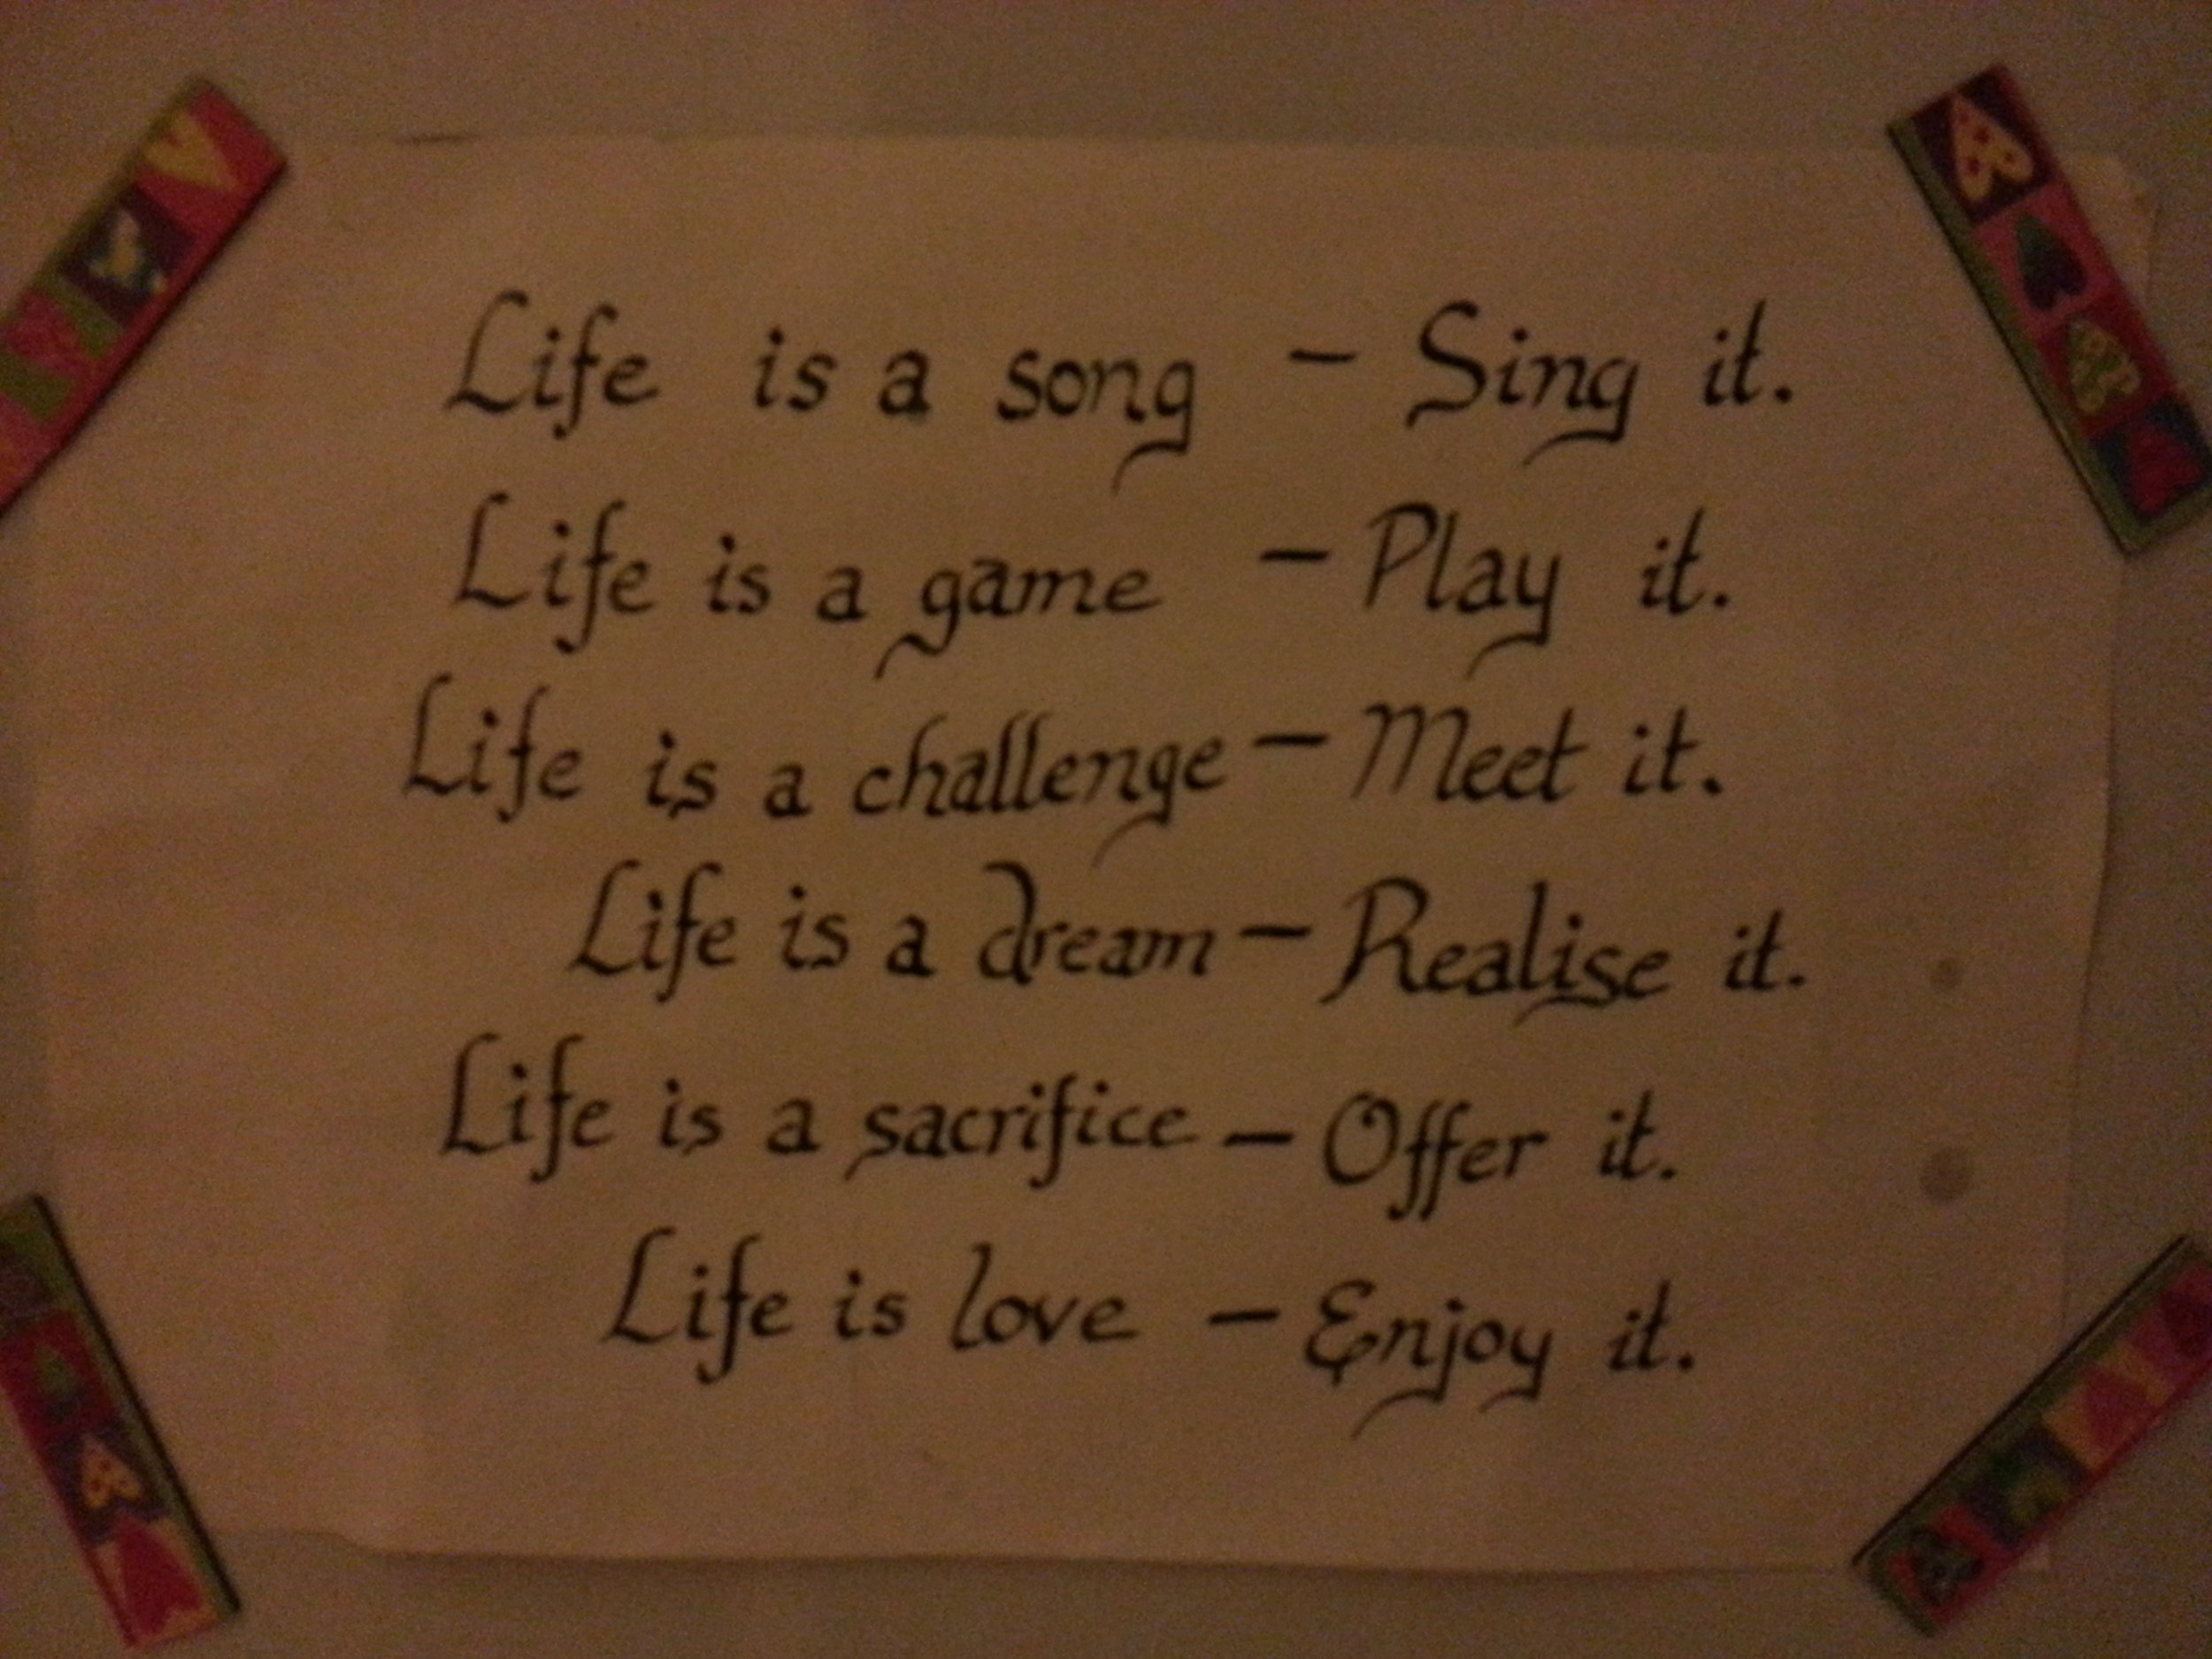 Life is a song - Sing it.
Life is a game - Play it.
Life is a challenge - Meet it.
Life is a dream - Realise it.
Life is a sacrifice - Offer it.
Life is love - Enjoy it.